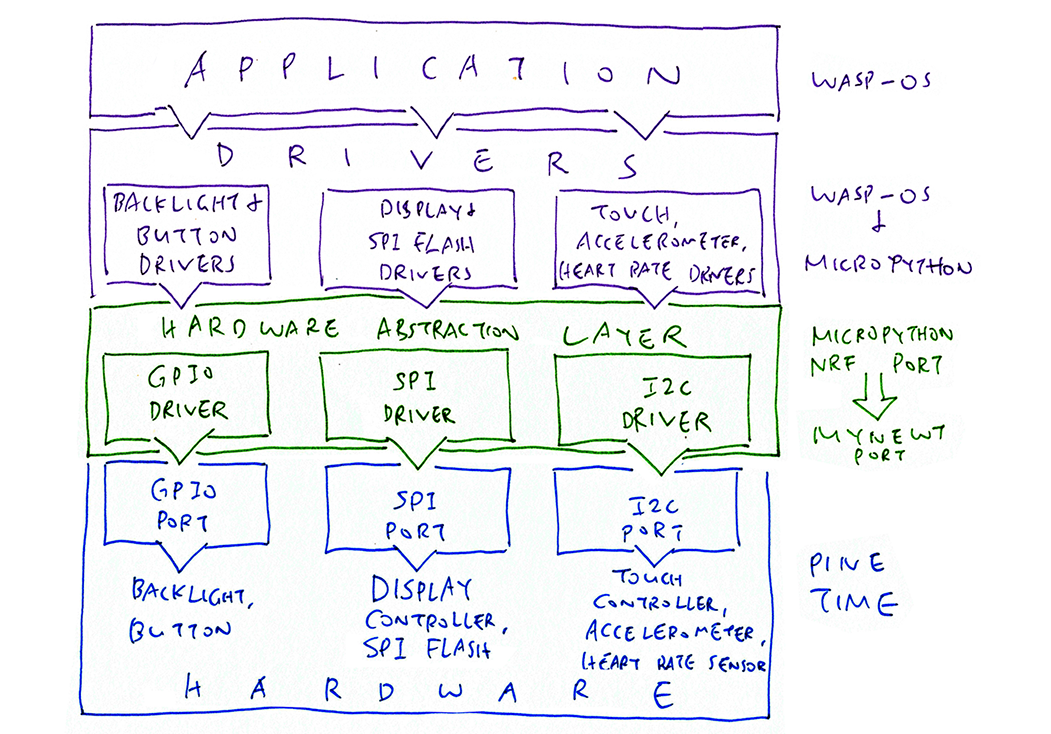 APPLICATION
WASP-OS
DRIVERS
BACKLIGHT &
BUTTON
DRIVERS
DISPLAY &
SPI FLASH
DRIVERS
TOUCH,
ACCELEROMETER,
HEART RATE DRIVERS
WASP-OS
&
MICROPYTHON
HARDWARE ABSTRACTION LAYER
GPIO
DRIVER
SPI
DRIVER
I2C
DRIVER
MICROPYTHON
NRF PORT
MYNEWT
PORT
GPIO
PORT
SPI
PORT
I2C
PORT
BACKLIGHT,
BUTTON
DISPLAY
CONTROLLER,
SPI FLASH
TOUCH
CONTROLLER,
ACCELEROMETER,
HEART RATE SENSOR
PINE
TIME
HARDWARE